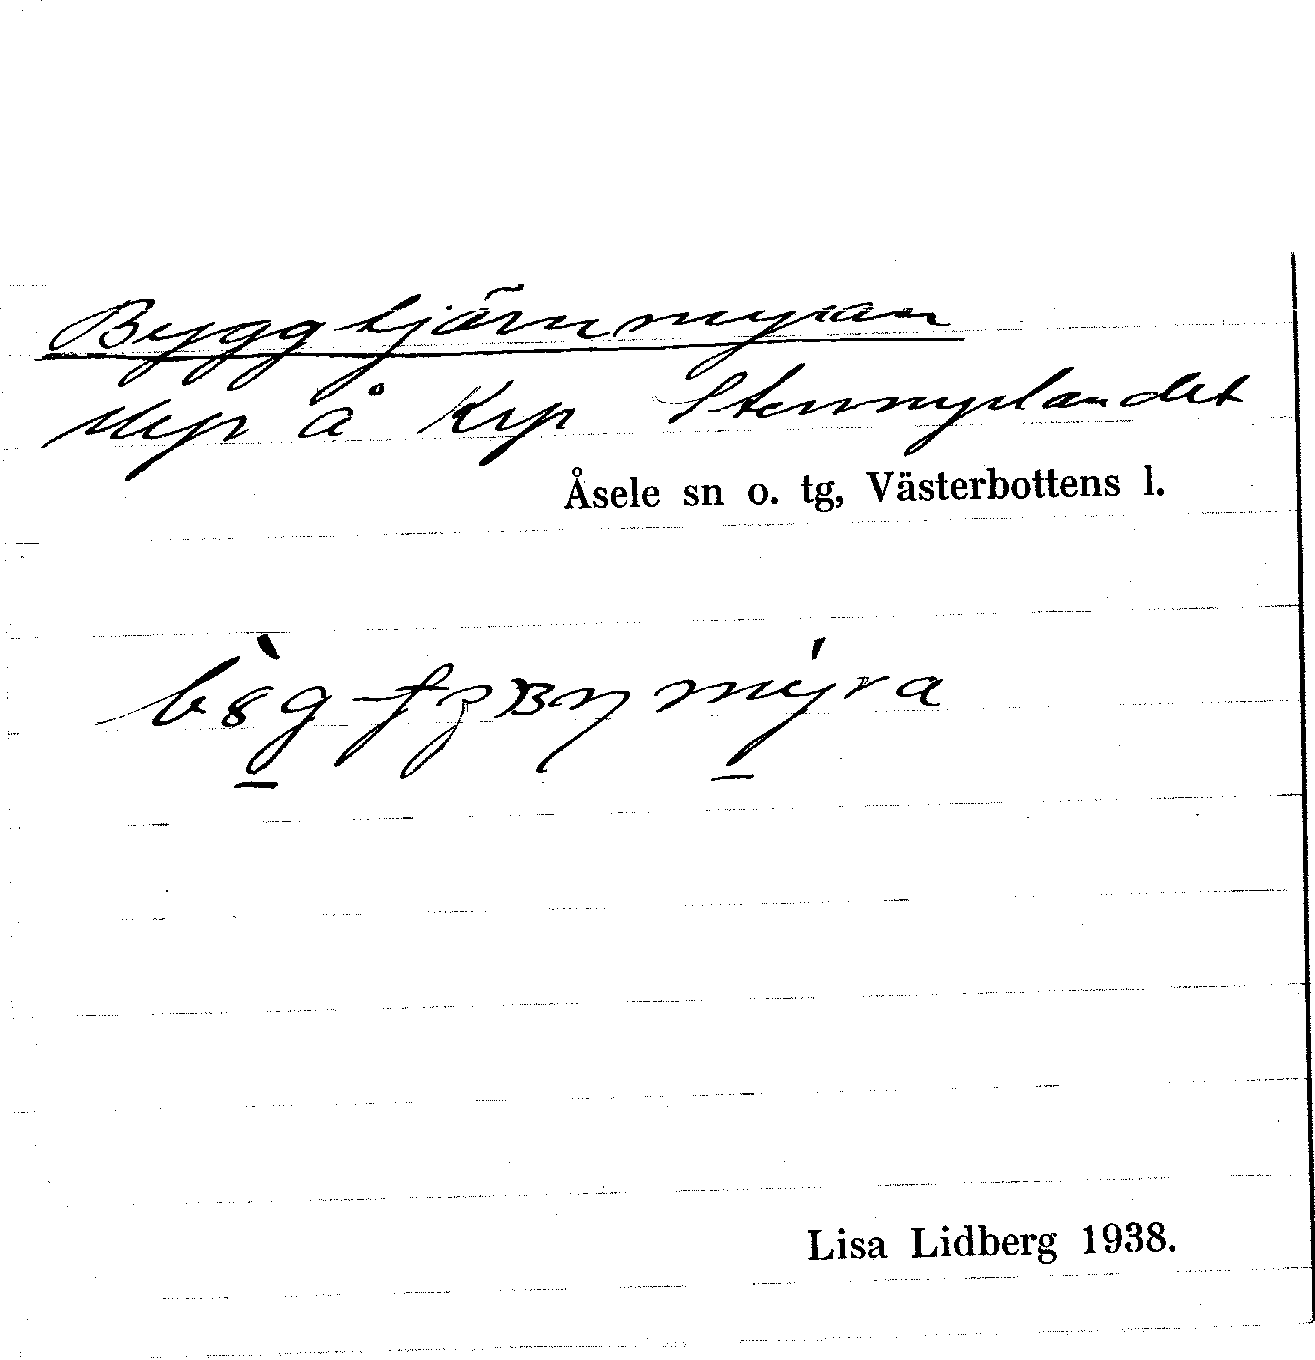 Byggtjärnmyran
Myr å Krp Stennylandet
Åsele sn o. tg, Västerbottens l.
Lisa Lidberg 1938.